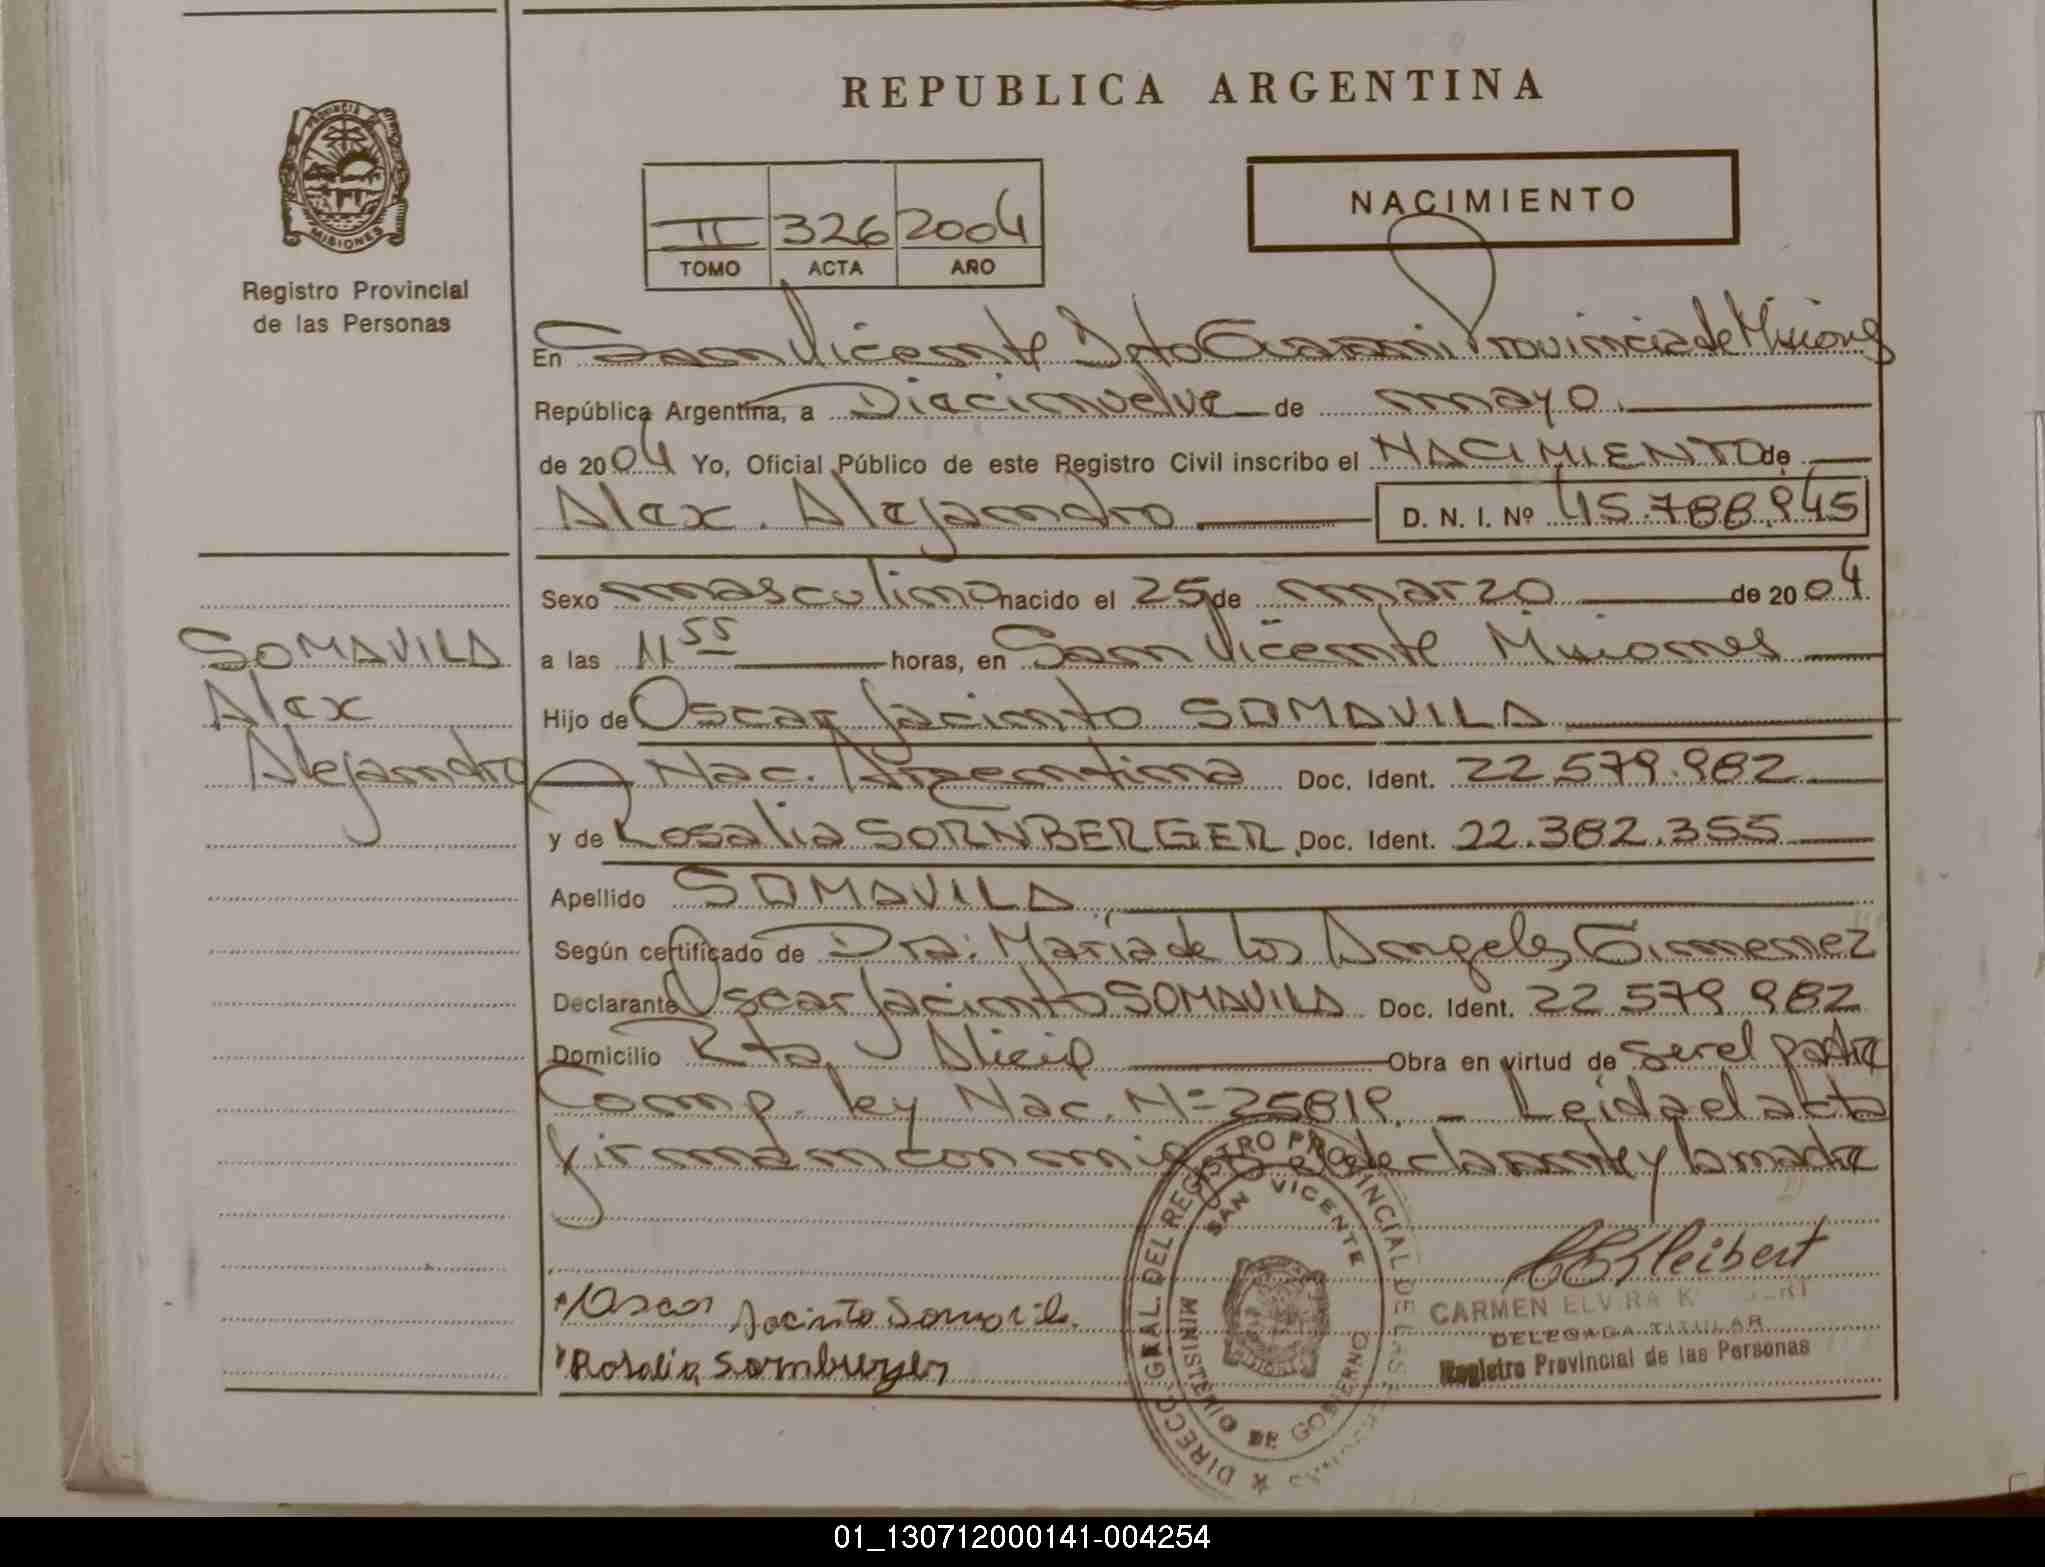 REPUBLICA ARGENTINA
PROVINCIA
MISIONES
Registro Provincial
de las Personas
II 326 2004
TOMO ACTA AÑO
NACIMIENTO
En San Vicente Dpto Guarani Provincia de Misiones
República Argentina, a Diecinueve de mayo
de 2004 Yo, Oficial Público de este Registro Civil inscribo el NACIMIENTO de
Alex Alejandro D. N. I. Nº 45.788.945
Sexo masculino nacido el 25 de marzo de 2004
SOMAVILA
Alex
Alejandro
a las 11 55 horas, en San Vicente Misiones
Hijo de Oscar Jacinto SOMAVILA
Nac. Argentina Doc. Ident. 22.579.982
y de Rosalia SORNBERGER Doc. Ident. 22.382.355
Apellido SOMAVILA
Según certificado de Dra. Maria de los Angeles Gimenez
Declarante Oscar Jacinto SOMAVILA Doc. Ident. 22 579 982
Domicilio Pto Alicia Obra en virtud de ser el padre
Comp. ley Nac. Nº 25819. - Leida el acta
firman conmigo el declarante y la madre
Oscar Jacinto Somavila
Rosalia Sornberger
DIRECC. GRAL. DEL REGISTRO PROVINCIAL DE LAS
SAN VICENTE
MINISTERIO DE GOBIERNO
CEKleibert
CARMEN ELVIRA
DELEGADA TITULAR
Registro Provincial de las Personas
01_130712000141-004254